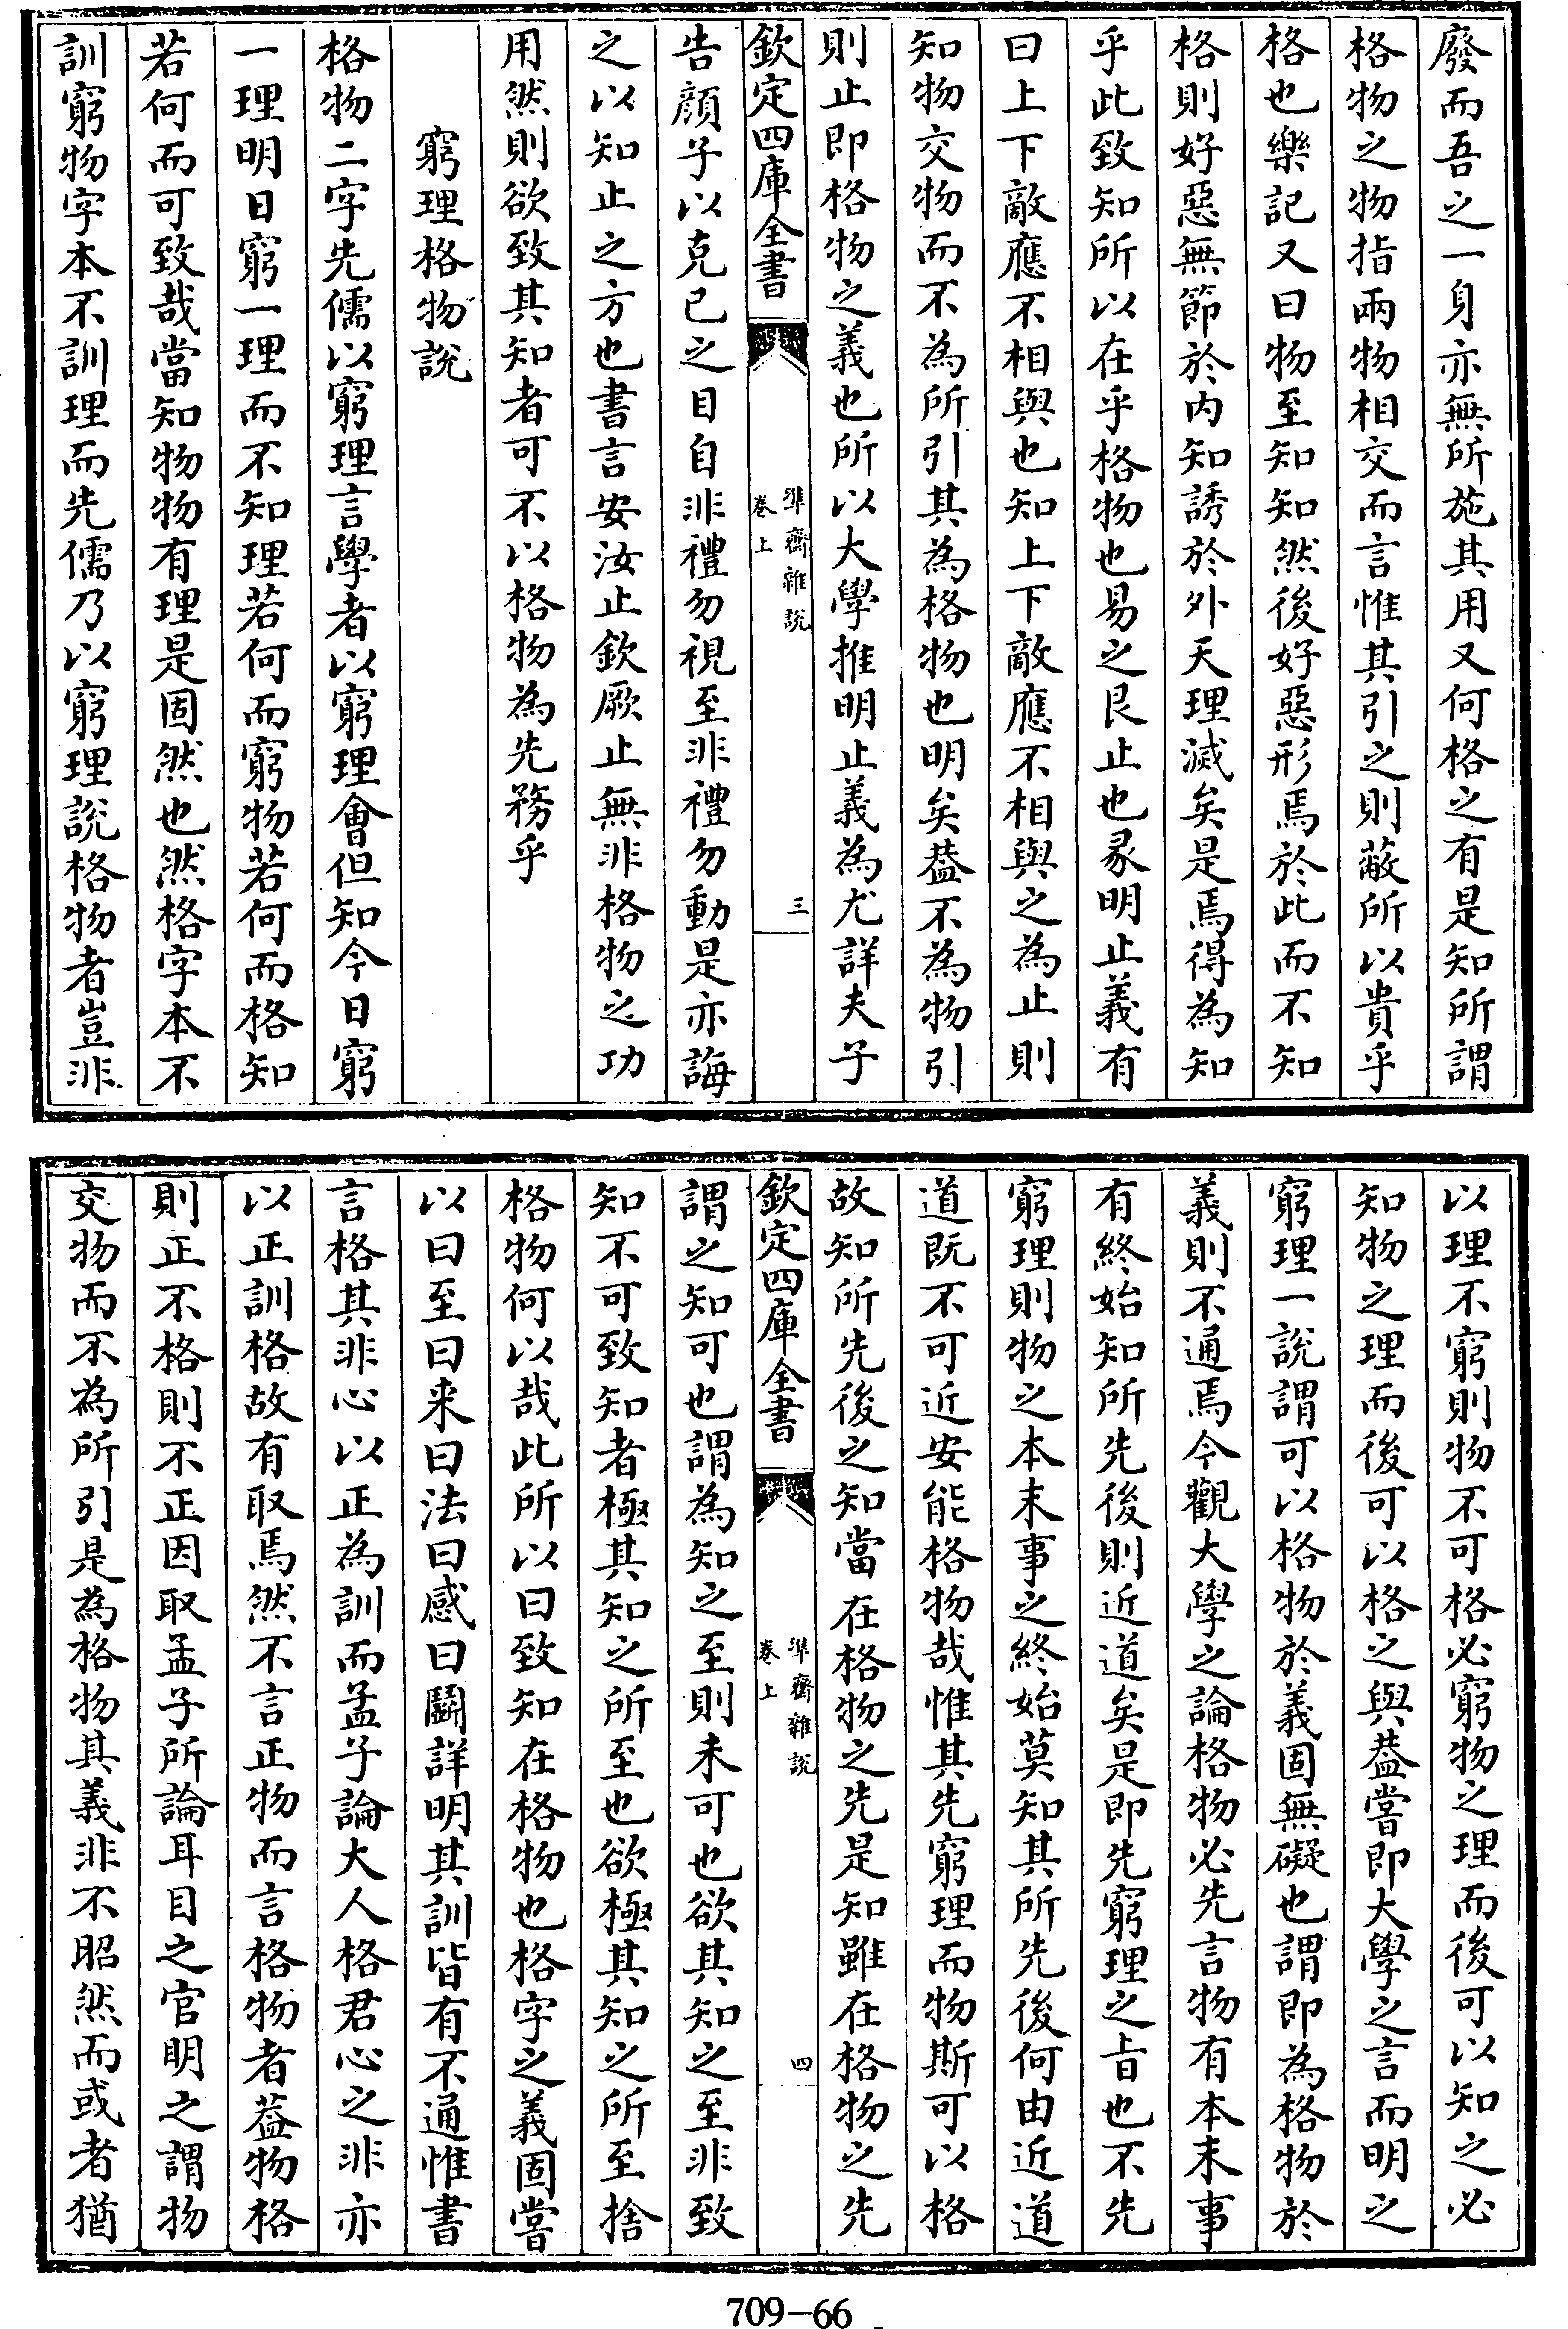 廢而吾之一身亦無所施其用又何格之有是知所謂
格物之物指兩物相交而言惟其引之則蔽所以貴乎
格也樂記又曰物至知知然後好惡形焉於此而不知
格則好惡無節於内知誘於外天理滅矣是焉得為知
乎此致知所以在乎格物也易之艮止也彖明止義有
曰上下敵應不相與也知上下敵應不相與之為止則
知物交物而不為所引其為格物也明矣葢不為物引
則止即格物之義也所以大學推明止義為尤詳夫子
欽定四庫全書
準齋雜說
卷上
三
告顔子以克已之目自非禮勿視至非禮勿動是亦誨
之以知止之方也書言安汝止欽厥止無非格物之功
用然則欲致其知者可不以格物為先務乎
窮理格物說
格物二字先儒以窮理言學者以窮理會但知今日窮
一理明日窮一理而不知理若何而窮物若何而格知
若何而可致哉當知物物有理是固然也然格字本不
訓窮物字本不訓理而先儒乃以窮理說格物者豈非
以理不窮則物不可格必窮物之理而後可以知之必
知物之理而後可以格之與葢嘗即大學之言而明之
窮理一說謂可以格物於義固無礙也謂即為格物於
義則不通焉今觀大學之論格物必先言物有本末事
有終始知所先後則近道矣是即先窮理之旨也不先
窮理則物之本末事之終始莫知其所先後何由近道
道既不可近安能格物哉惟其先窮理而物斯可以格
故知所先後之知當在格物之先是知雖在格物之先
欽定四庫全書
準齋雜說
卷上
四
謂之知可也謂為知之至則未可也欲其知之至非致
知不可致知者極其知之所至也欲極其知之所至捨
格物何以哉此所以曰致知在格物也格字之義固嘗
以曰至曰来曰法曰感曰鬭詳明其訓皆有不通惟書
言格其非心以正為訓而孟子論大人格君心之非亦
以正訓格故有取焉然不言正物而言格物者葢物格
則正不格則不正因取孟子所論耳目之官明之謂物
交物而不為所引是為格物其義非不昭然而或者猶
709-66